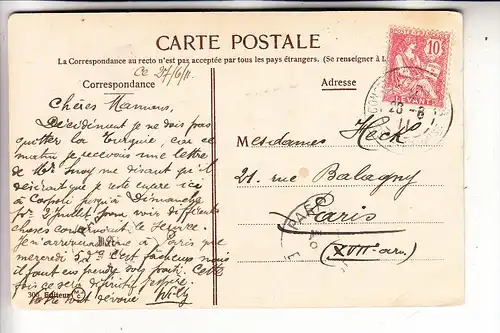 CARTE POSTALE
La Correspondance au recto n'est pas acceptée par tous les pays étrangers. (Se renseigner à l
Ce 27/6/11
Correspondance
Adresse
10
LEVANT
28 - 6
Chères Mamans,
Décidément je ne dois pas
quitter la Turquie, car ce
matin je recevais une lettre
de Mr me disant qu'il
désirait que je reste encore ici
à jusqu'à Dimanche
pr 2 Juillet pour voir différentes
choses concernant le service.
Je n'arriverai donc à Paris que
mercredi 5. C'est fâcheux mais
il faut en prendre son parti. Cette
fois ce sera définitif j'espère.
Votre tout dévoué Willy
Mesdames Heck
21. rue Balagny
Paris
(XVIIe arr.)
PARIS
304 Editeur